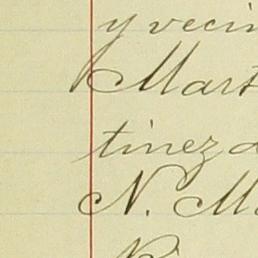 y vecin
Mart
tinez d
N. M.